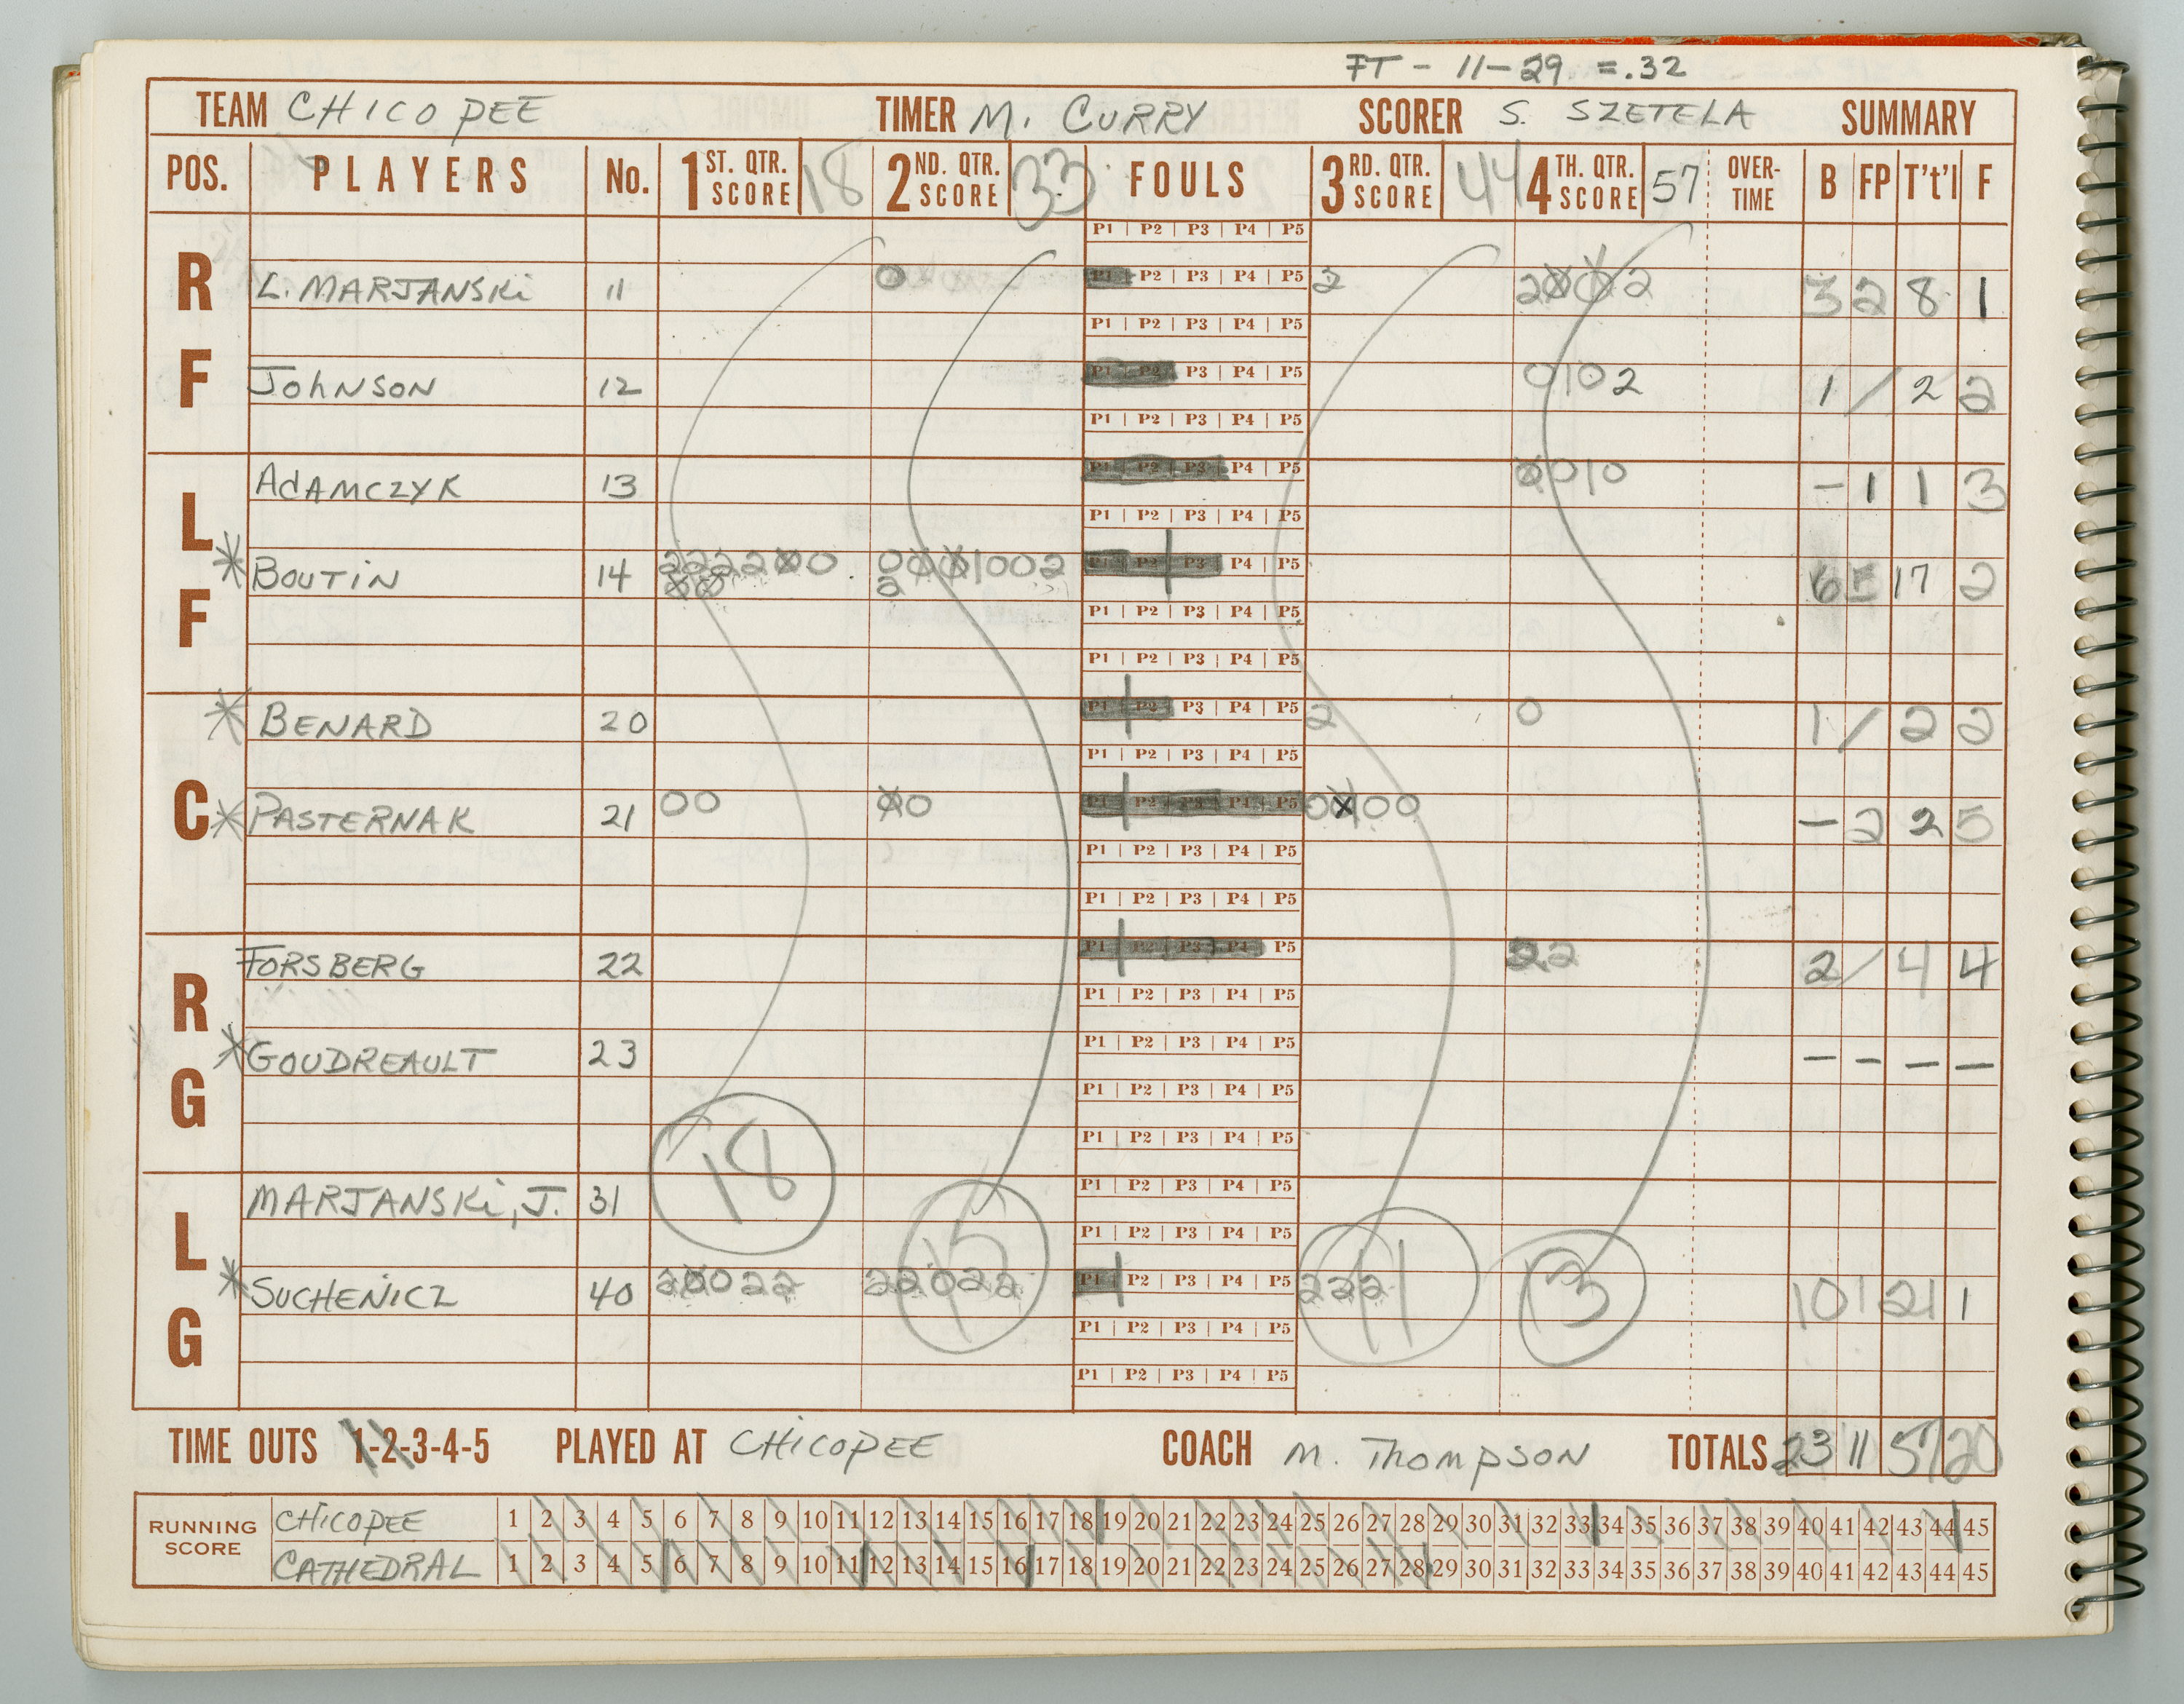 FT - 11-29 = .32
TEAM CHICOPEE TIMER M. CURRY SCORER S. SZETELA SUMMARY
POS. PLAYERS No. 1 ST. QTR. SCORE 18 2 ND. QTR. SCORE 33 FOULS 3 RD. QTR. SCORE 44 4 TH. QTR. SCORE 57 OVER-TIME B FP T't'l F
P1 | P2 | P3 | P4 | P5
RF
L. MARJANSKi 11 0 P1 | P2 | P3 | P4 | P5 2 3 2 8 1
P1 | P2 | P3 | P4 | P5
JohNSON 12 P1 | P2 | P3 | P4 | P5 0102 1 / 2 2
P1 | P2 | P3 | P4 | P5
LF
AdAMCZYK 13 P1 | P2 | P3 | P4 | P5 - 1 1 3
P1 | P2 | P3 | P4 | P5
* BOUTiN 14 P1 | P2 | P3 | P4 | P5 6 17 2
P1 | P2 | P3 | P4 | P5
P1 | P2 | P3 | P4 | P5
C
* BENARD 20 P1 | P2 | P3 | P4 | P5 2 0 1 / 2 2
P1 | P2 | P3 | P4 | P5
* PASTERNAK 21 00 P1 | P2 | P3 | P4 | P5 - 2 2 5
P1 | P2 | P3 | P4 | P5
P1 | P2 | P3 | P4 | P5
RG
FORSBERG 22 P1 | P2 | P3 | P4 | P5 22 2 / 4 4
P1 | P2 | P3 | P4 | P5
* GOUDREAULT 23 P1 | P2 | P3 | P4 | P5 - - - -
P1 | P2 | P3 | P4 | P5
P1 | P2 | P3 | P4 | P5
LG
MARJANSKi, J. 31 P1 | P2 | P3 | P4 | P5
18 15 P1 | P2 | P3 | P4 | P5 11 13
* SUCHENiCZ 40 22022 P1 | P2 | P3 | P4 | P5 222 10 1 21 1
P1 | P2 | P3 | P4 | P5
P1 | P2 | P3 | P4 | P5
TIME OUTS 1-2-3-4-5 PLAYED AT CHiCOPEE COACH M. ThOMPSON TOTALS 23 11 57 20
RUNNING SCORE
CHiCOPEE 1 2 3 4 5 6 7 8 9 10 11 12 13 14 15 16 17 18 19 20 21 22 23 24 25 26 27 28 29 30 31 32 33 34 35 36 37 38 39 40 41 42 43 44 45
CATHEDRAL 1 2 3 4 5 6 7 8 9 10 11 12 13 14 15 16 17 18 19 20 21 22 23 24 25 26 27 28 29 30 31 32 33 34 35 36 37 38 39 40 41 42 43 44 45